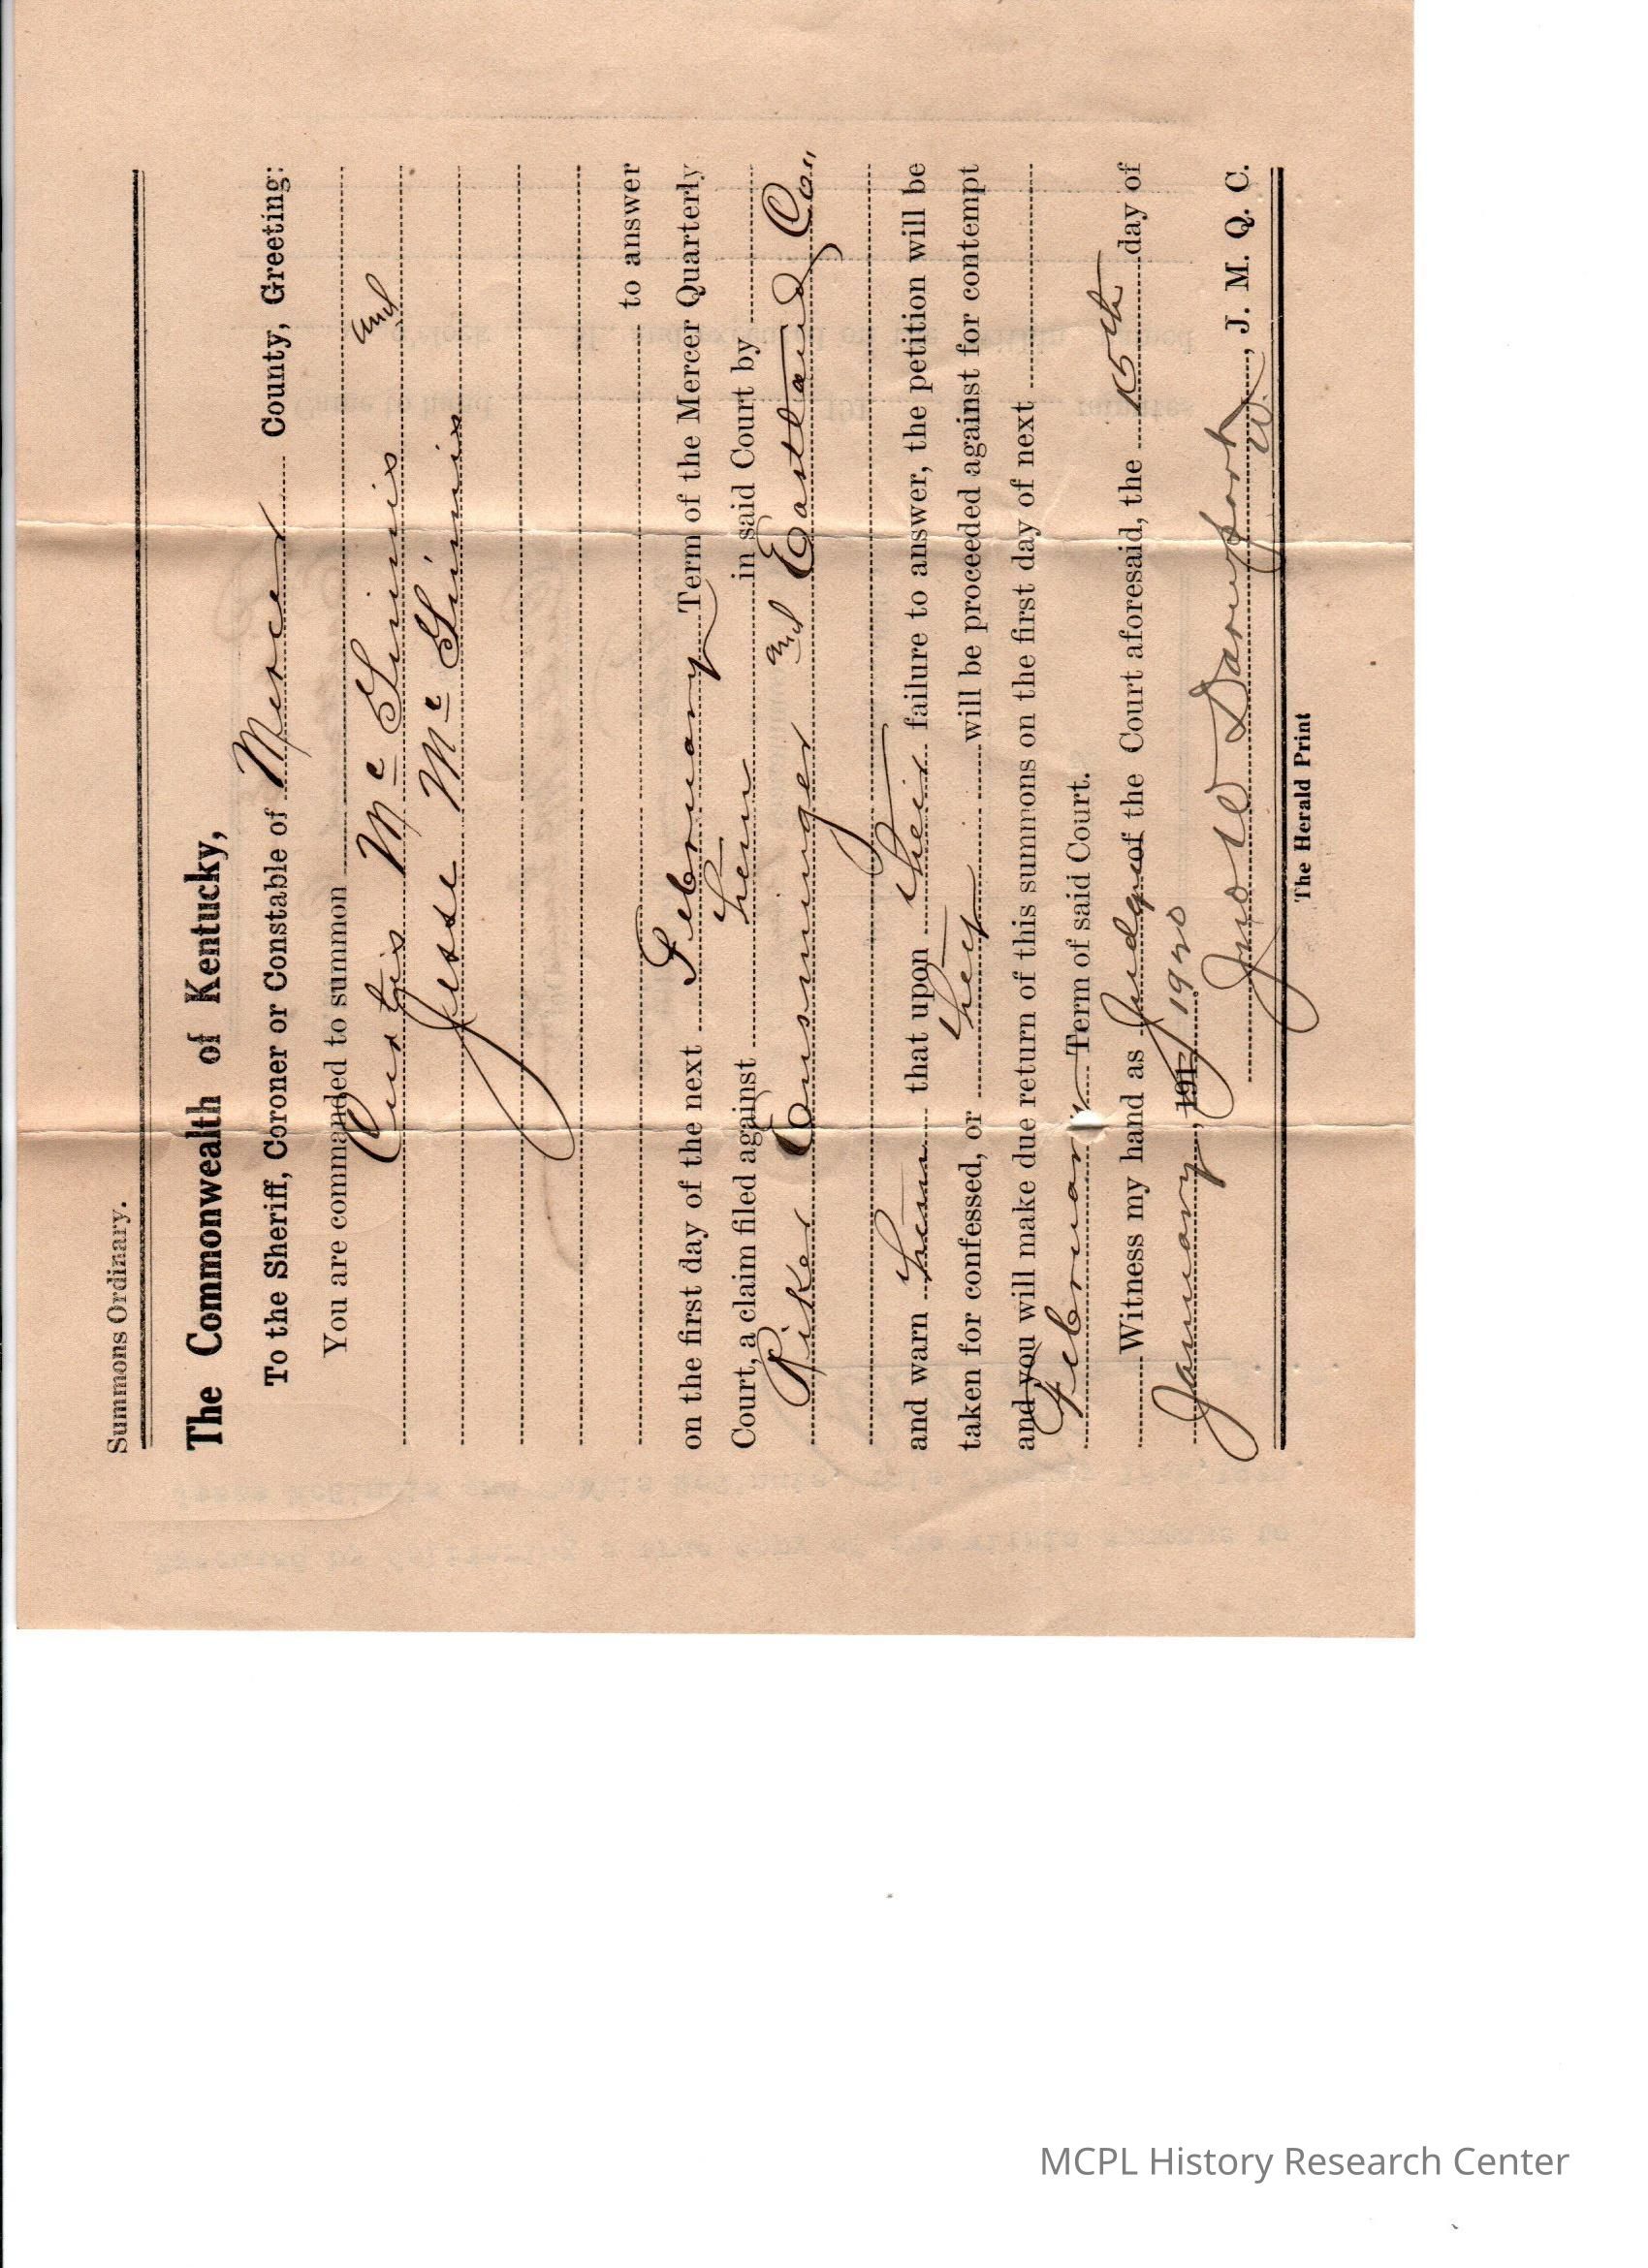 Summons Ordinary.
The Commonwealth of Kentucky,
To the Sheriff, Coroner or Constable of Mercer County, Greeting:
You are commanded to summon
Curtis McGinnis and
Jesse McGinnis
to answer
on the first day of the next February Term of the Mercer Quarterly
Court, a claim filed against them in said Court by
Riker Ensminger and Eastland Co.,
and warn them that upon their failure to answer, the petition will be
taken for confessed, or they will be proceeded against for contempt
and you will make due return of this summons on the first day of next
February Term of said Court.
Witness my hand as Judge of the Court aforesaid, the 15th day of
January, 191 1920
Jno W , J. M. Q. C.
The Herald Print
MCPL History Research Center